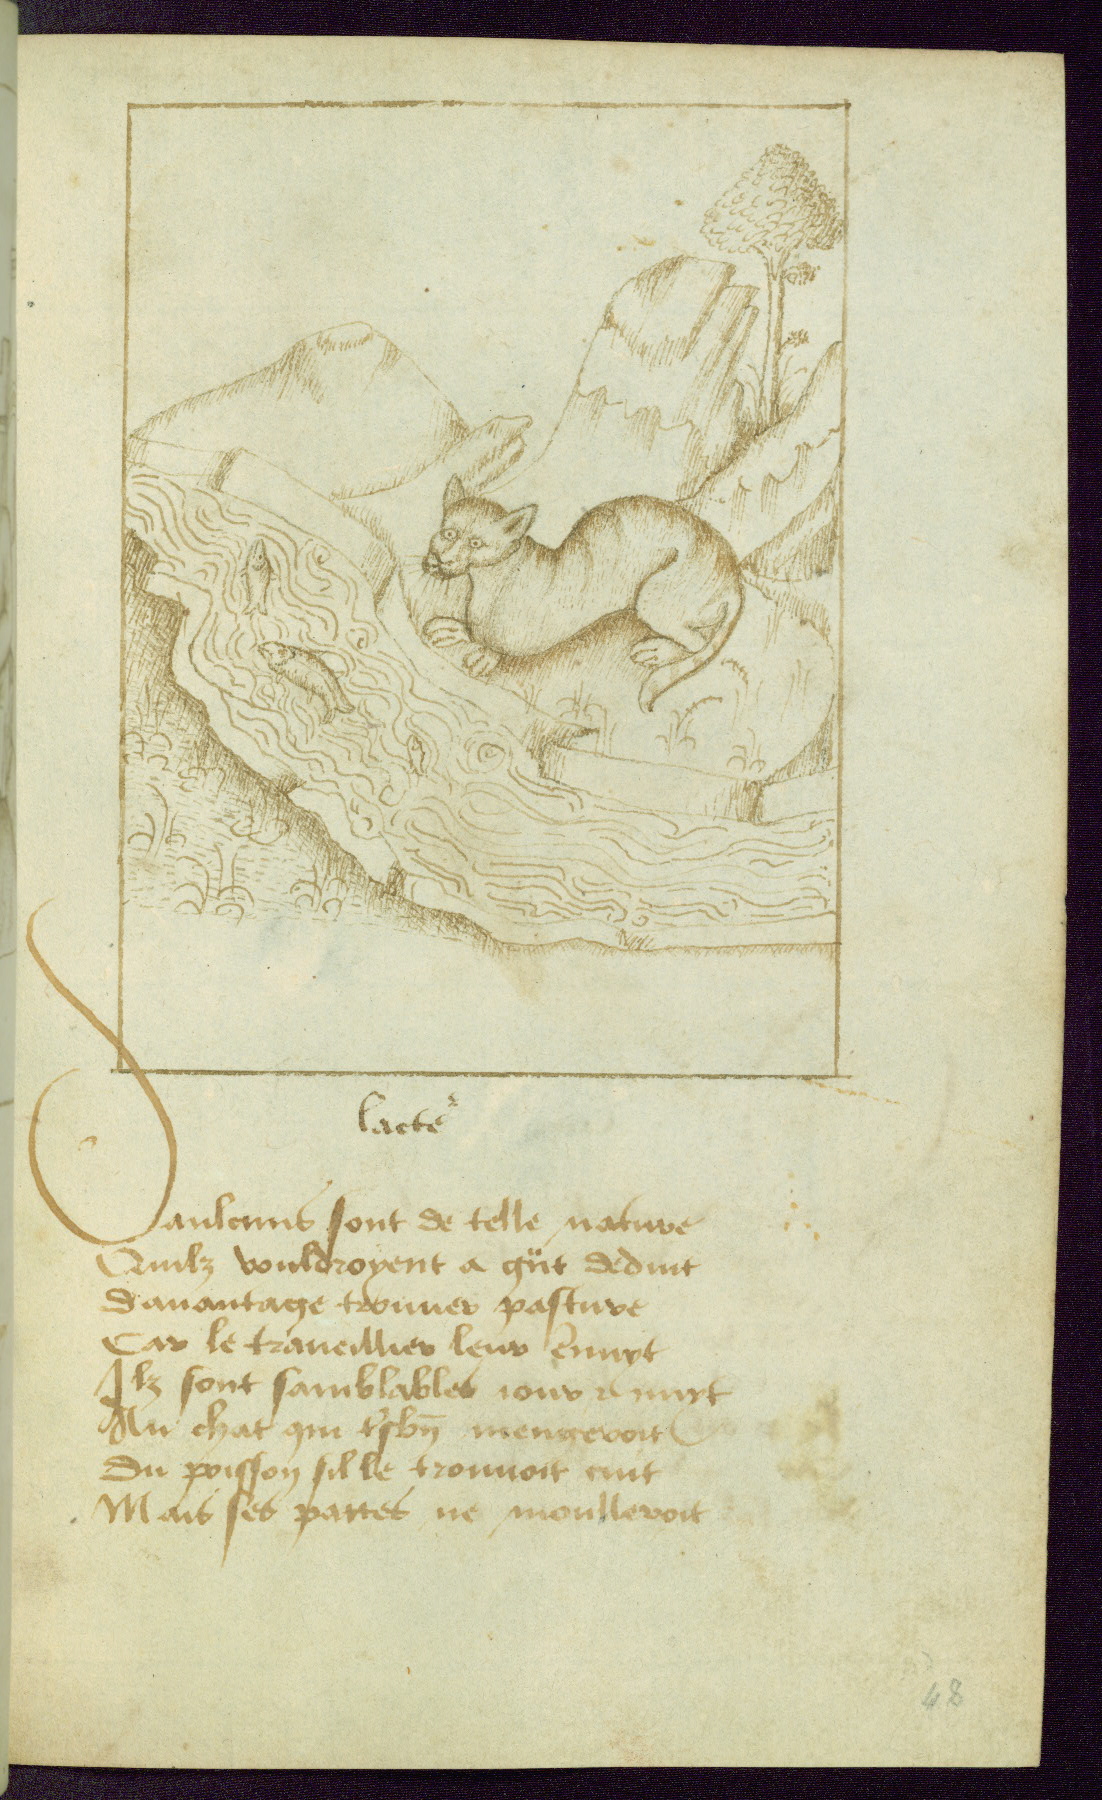 lacteᷣ
Saulcuns sont de telle nature
Quilz vouldroyent a gr̃t deduit
Dauantage trouuer pasture
Car le traueillier leur ennuyt
Ilz sont samblables iour & nuyt
Au chat qui tʳsbn̄ mengeroit
Du poisson sil le trouuoit cuit
Mais ses pattes ne moulleroit
48